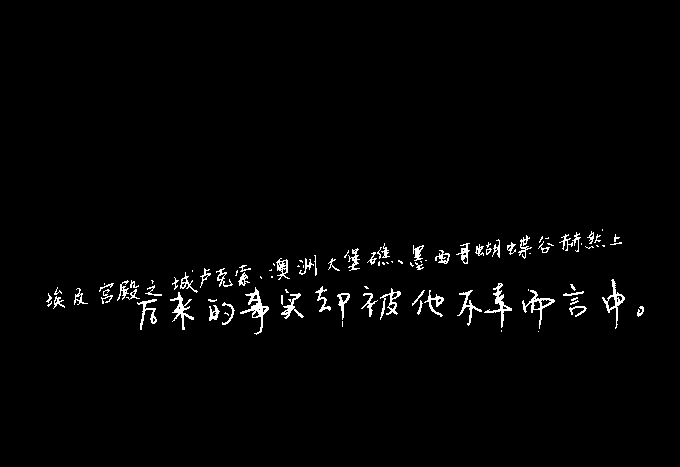 埃及宫殿之城卢克索、澳洲大堡礁、墨西哥蝴蝶谷赫然上
后来的事实却被他不幸而言中。